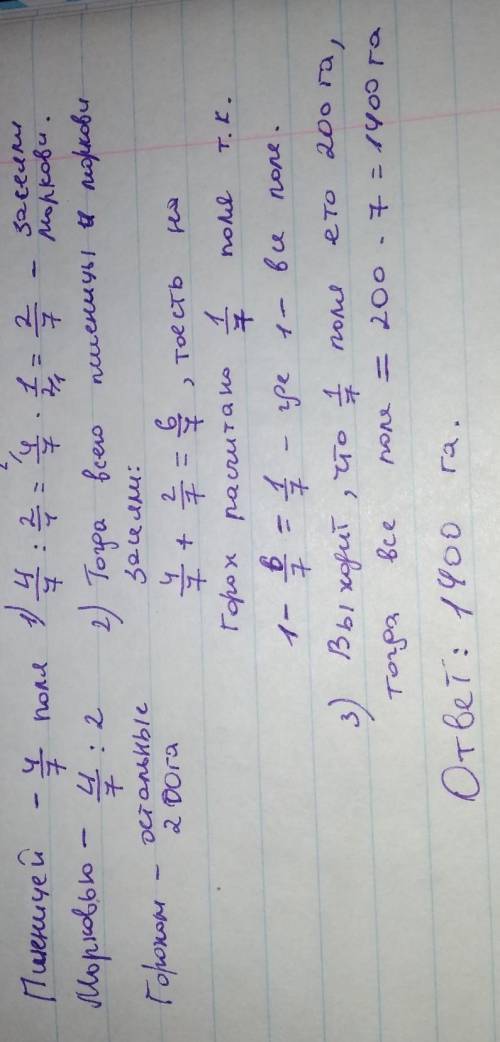 Пшеницей - 4/7 поля
Морковью - 4/7 : 2
Горохом - остальные
200га
1) 4/7 : 2/1 = 4/7 · 1/2 = 2/7 - засеяли
моркови.
2) Тогда всего пшеницы и моркови
засеяли:
4/7 + 2/7 = 6/7, тоесть на
Горох расчитано 1/7 поля т.к.
1 - 6/7 = 1/7 - где 1 - все поле.
3) Выходит, что 1/7 поля ето 200га,
тогда все поле = 200 · 7 = 1400 га
Ответ: 1400 га.